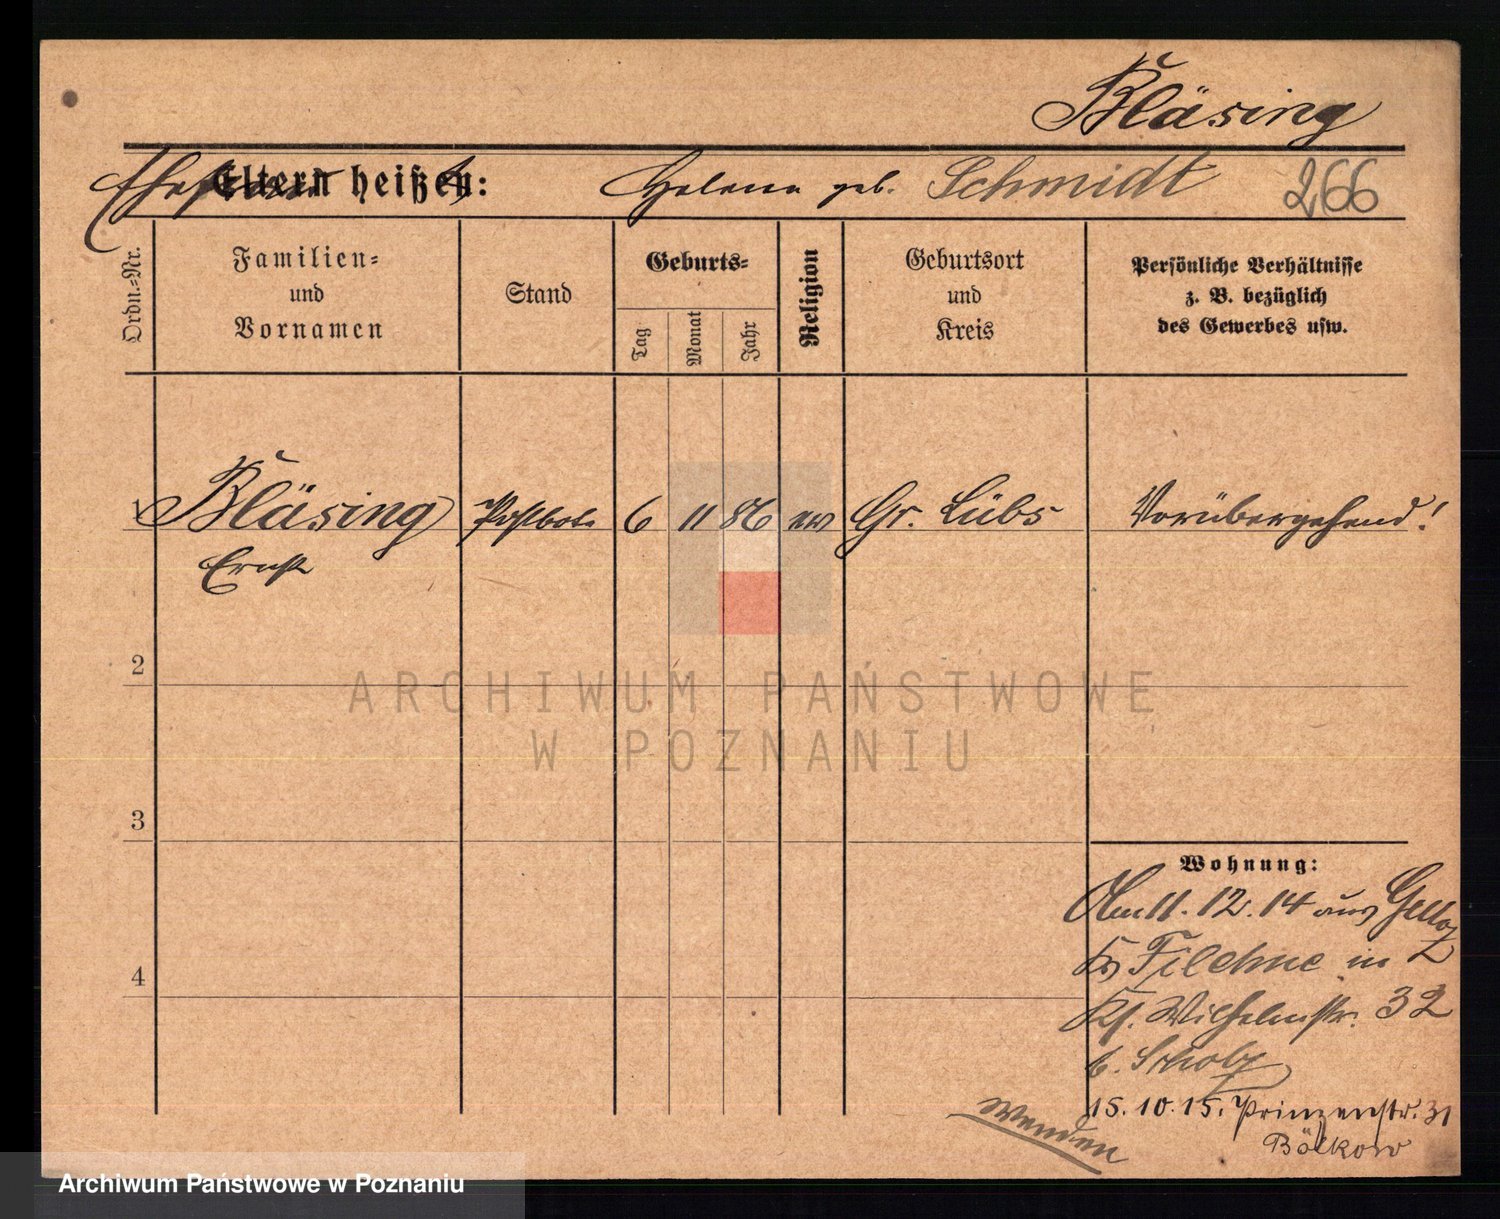 Bläsing
Ehefrau Eltern heißen: Helene geb. Schmidt 266
Ordn.-Nr.
Familien-
und
Vornamen
Stand
Geburts-
Tag
Monat
Jahr
Religion
Geburtsort
und
Kreis
Persönliche Verhältnisse
z. B. bezüglich
des Gewerbes usw.
1 Bläsing Postbote 6 11 86 ew Gr. Lübs Vorübergehend!
Ernst
2
ARCHIWUM PAŃSTWOWE
W POZNANIU
3
4
Wohnung:
11. 12. 14 aus
Kr Filehne in
Kl. Wilhelmstr. 32
b. Scholz
15. 10. 15. Prinzenstr. 31
Bölkow
Wenden
Archiwum Państwowe w Poznaniu